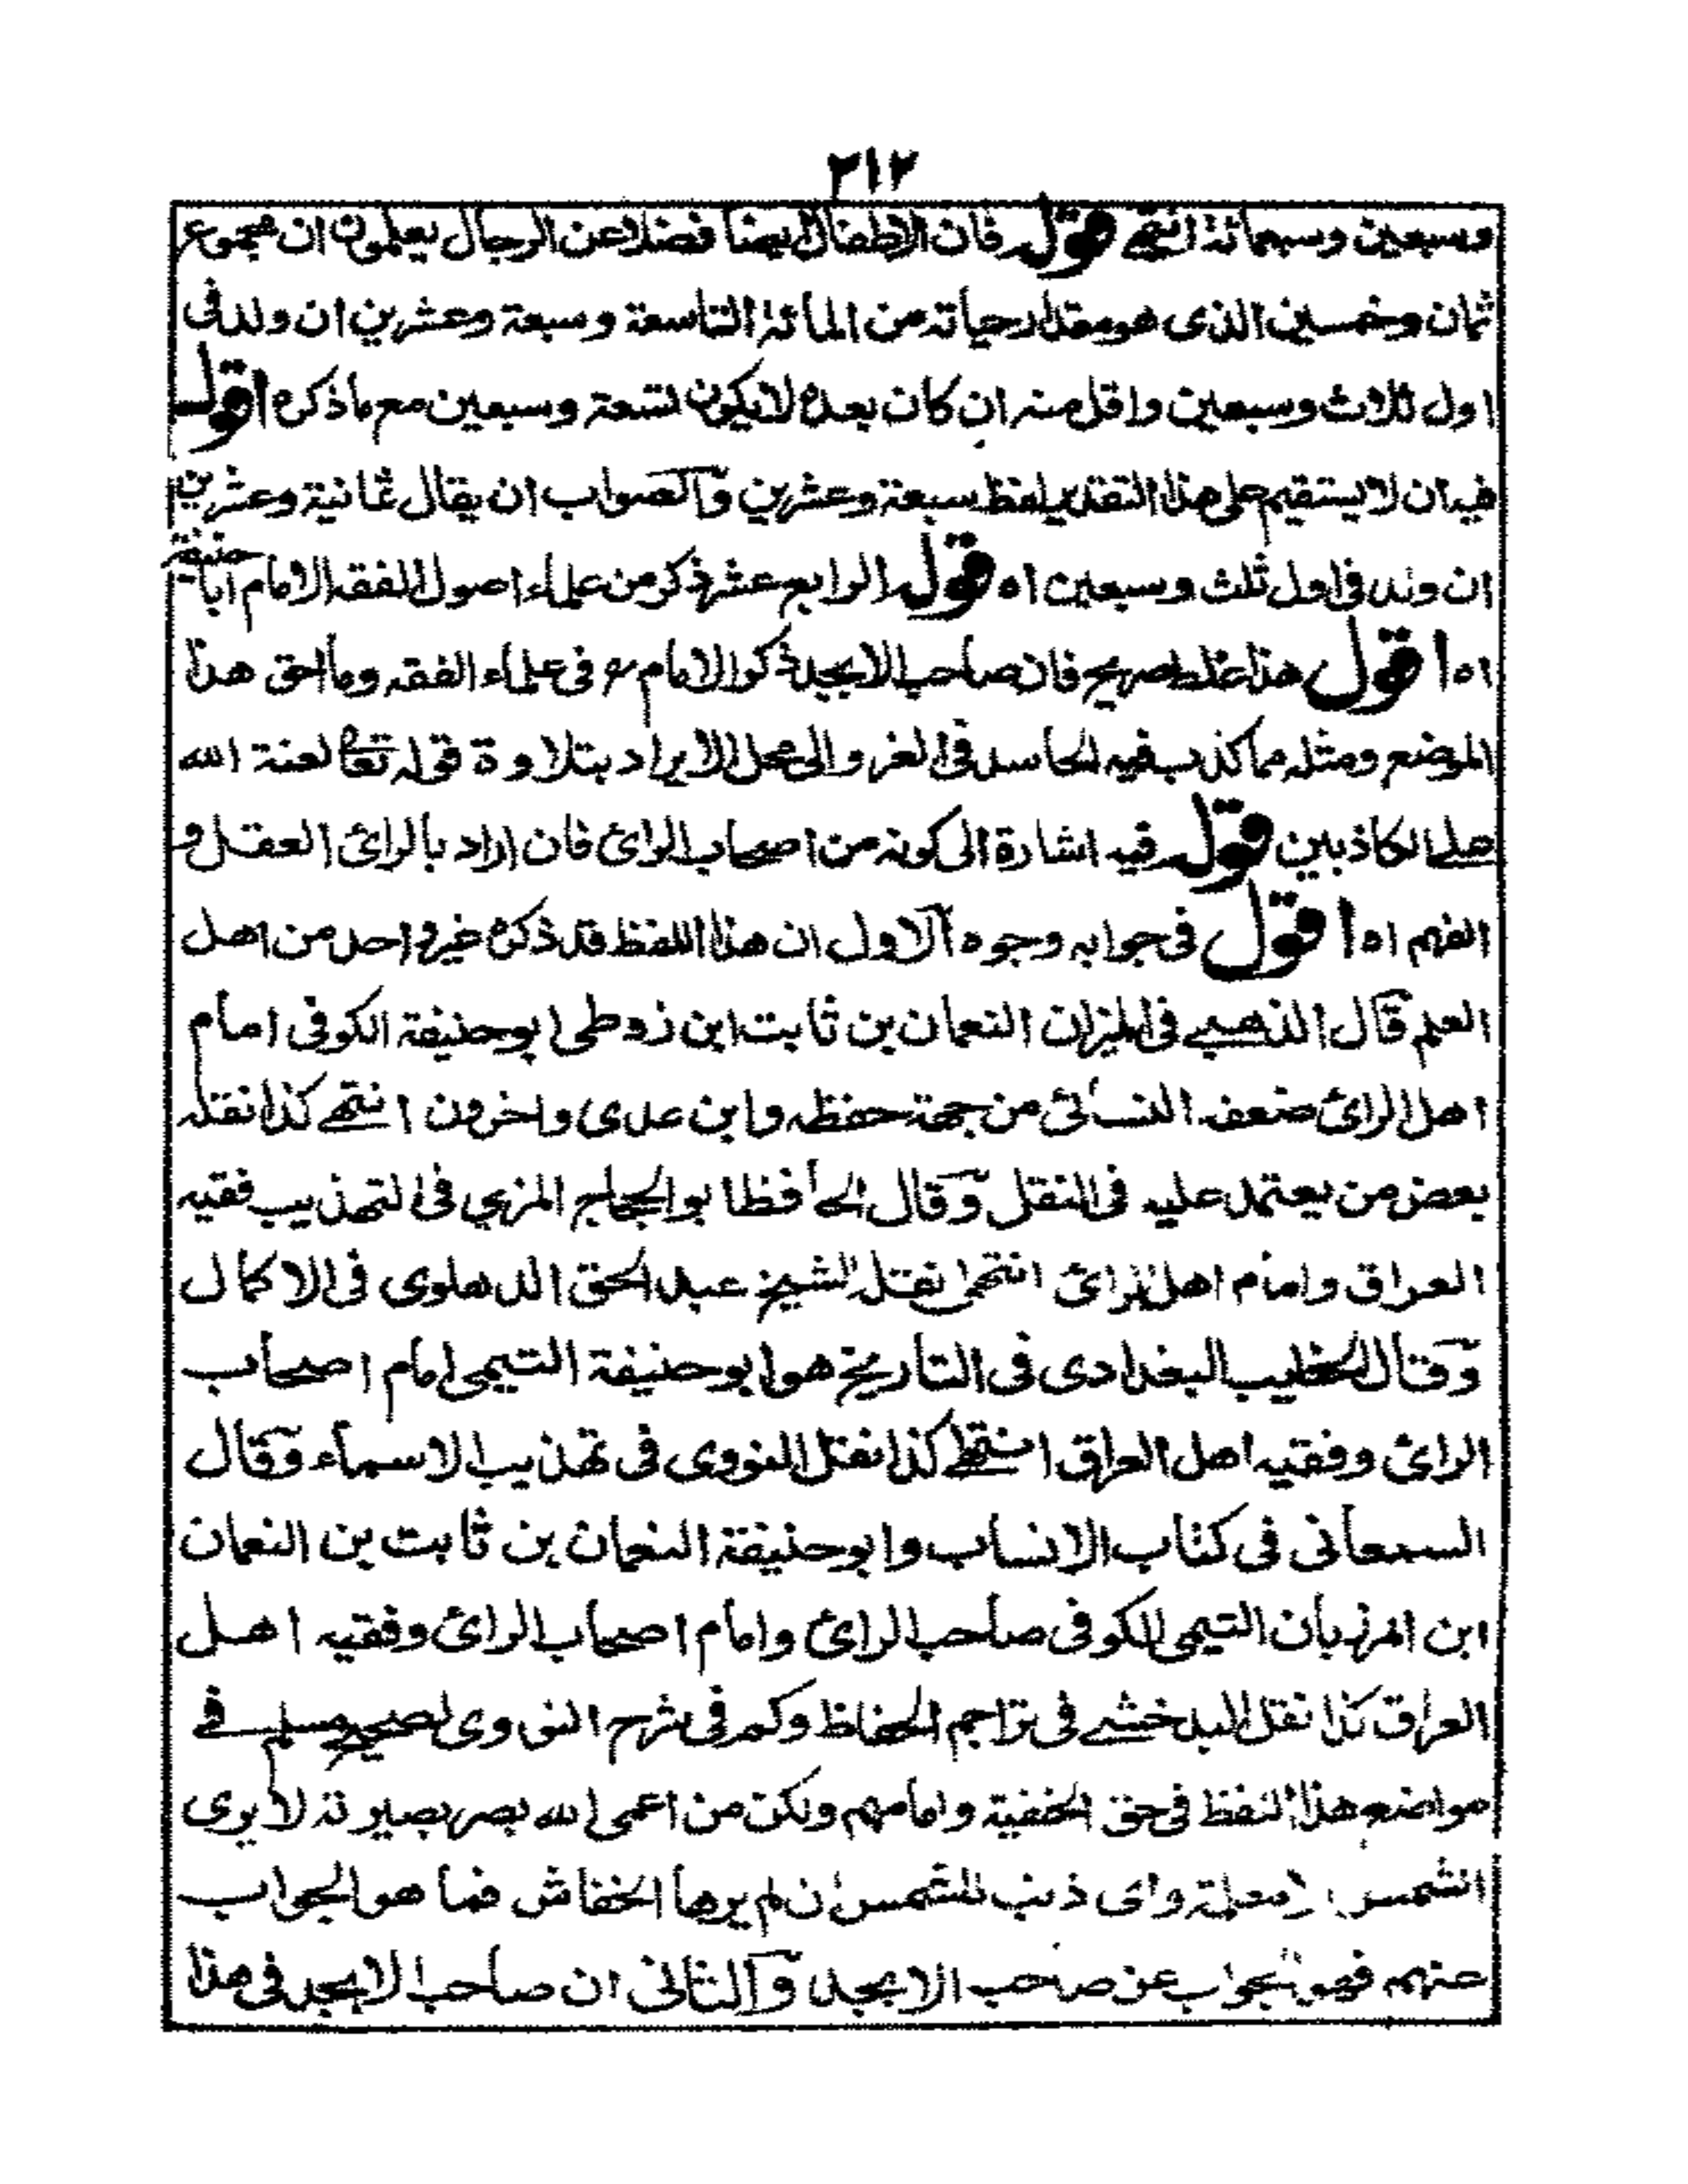 ٢١٢
وسبعين وسبعمائة انتهى قوله فان الاطفال ايضا فضلا عن الرجال يعلمون ان مجموع
ثمان وخمسين الذى هو مقدار حياته من المائة التاسعة وسبعة وعشرين ان ولد فى
اول ثلاث وسبعين واقل منه ان كان بعده لا يكون تسعة وسبعين مع ما ذكره اقول
فيه ان لا يستقيم على هذا التقدير لفظ سبعة وعشرين والصواب ان يقال ثمانية وعشرين
ان ولد فى اول ثلث وسبعين اه قوله الرابع عشر ذكر من علماء اصول الفقه الامام ابا حنيفة
اه اقول هذا غلط صريح فان صاحب الابجد ذكر الامام رح فى علماء الفقه وما احق هذا
الموضع ومثله مما كذب فيه الحاسد فى العزو الى محل الايراد بتلاوة قوله تعالى لعنة الله
على الكاذبين قوله فيه اشارة الى كونه من اصحاب الرائ فان اراد بالرائ العقل و
الفهم اه اقول فى جوابه وجوه الاول ان هذا اللفظ قد ذكره غير واحد من اهل
العلم قال الذهبى فى الميزان النعمان بن ثابت ابن زوطى ابو حنيفة الكوفى امام
اهل الرائ ضعفه النسائى من جهة حفظه وابن عدى واخرون انتهى كذا نقله
بعض من يعتمد عليه فى النقل وقال الحافظ ابو الحجاج المزى فى التهذيب فقيه
العراق وامام اهل الرائ انتهى نقله الشيخ عبد الحق الدهلوى فى الاكمال
وقال الخطيب البغدادى فى التاريخ هو ابو حنيفة التيمى امام اصحاب
الرائ وفقيه اهل العراق انتهى كذا نقل النووى فى تهذيب الاسماء وقال
السمعانى فى كتاب الانساب وابو حنيفة النعمان بن ثابت بن النعمان
ابن المرزبان التيمى الكوفى صاحب الرائ وامام اصحاب الرائ وفقيه اهل
العراق كذا نقل البدخشى فى تراجم الحفاظ وكم فى شرح النووى لصحيح مسلم فى
مواضع هذا اللفظ فى حق الحنفية وامامهم ولكن من اعمى الله بصر بصيرته لا يرى
الشمس وأى ذنب للشمس ان لم يرها الخفاش فما هو الجواب
عنهم فهو الجواب عن صاحب الابجد والثانى ان صاحب الابجد فى هذا